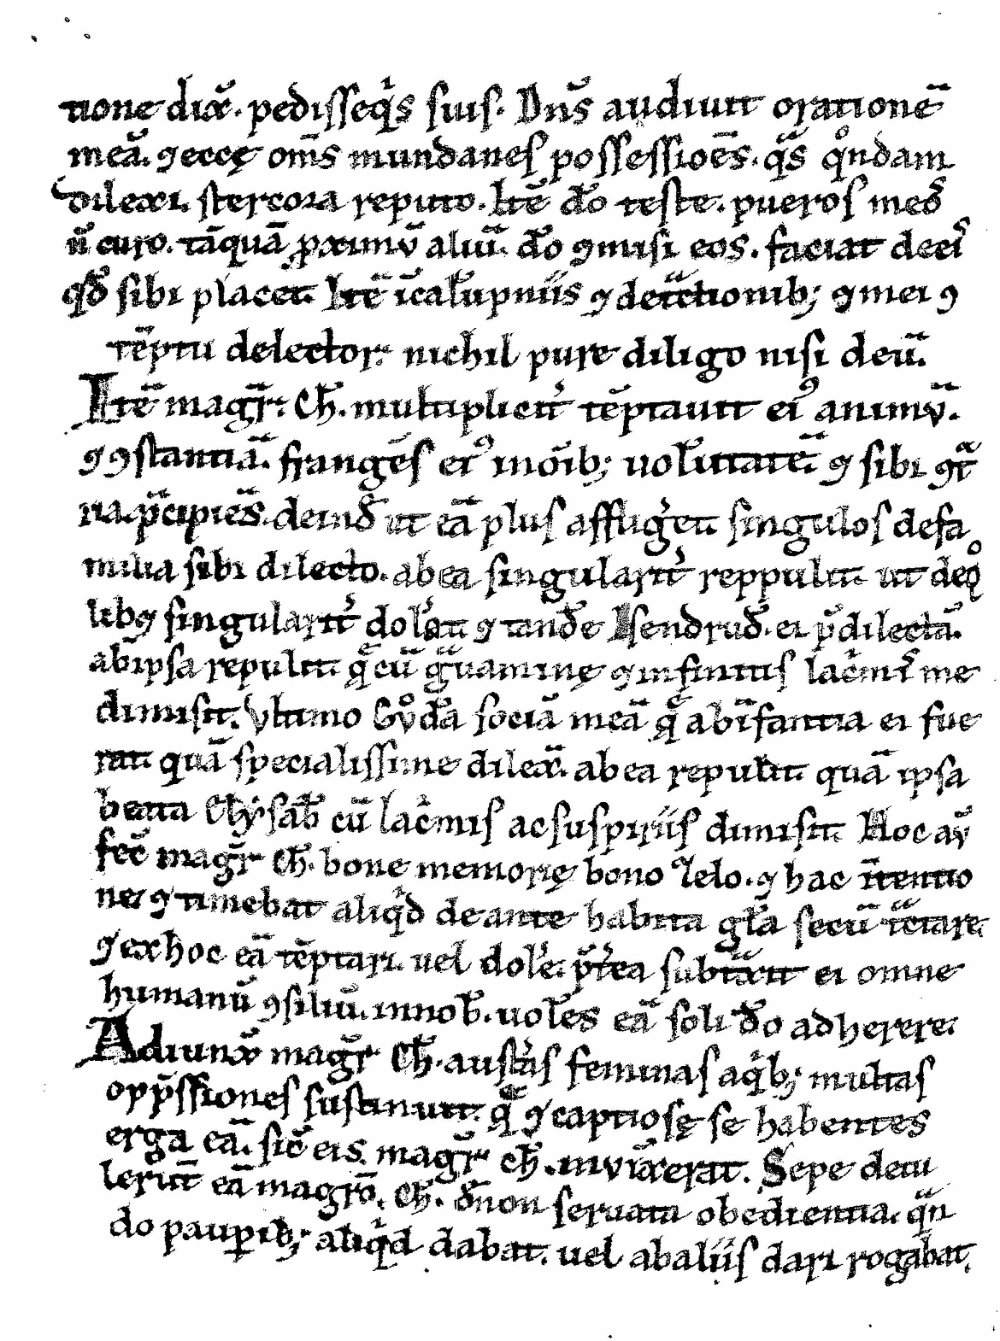 tione dix̄. pedisseq̓s suis. Dn̄s audiuit orationē
meā. ⁊ ecce om̄s mundanes possessiōes. q̄s q̊ndam
dilexi. stercora reputo. Itē dō teste. pueros meos
n̄ curo. tāquā ꝓximū aliū. dō ꝯmisi eos. faciat de eis
qd̄ sibi placet. Itē ī calūpniis ⁊ detͣctionib; ⁊ mei ꝯ
tēptu delector. nichil pure diligo nisi deū.
Itē magr̄. Ch̄. multiplicit̓ tēptauit eiꝰ animū.
⁊ ꝯstantiā. frangēs eiꝰ in om̄ib; uolūtatē. ⁊ sibi ꝯtͣ
ria. p̄cipiēs. deind̄ ut eā plus afflig̓et. singulos de fa
milia sibi dilecto. ab ea singularit̓ reppulit. ut de q̊
libꝫ singularit̓ dol̓et. ⁊ tandē Isendrud̄. ei p̄dilectā.
ab ipsa repulit. q̄ cū gͣuamine ⁊ infinitis lac̓mis me
dimisit. Vltimo Gůdā sociā meā q̄ ab īfantia ei fue
rat. quā specialissime dilex̄. ab ea repulit. quā ipsa
beata Elẏsab̄ cū lac̓mis ac suspiriis dimisit. Hoc aū
fec̄ magr̄ Ch̄. bone memorię bono zelo. ⁊ hac ītentio
ne. ⁊ timebat aliq̓d de ante habita gl̄a secū tͣctare.
⁊ ex hoc eā tēptari. uel dol̓e. p̄t̓ea subtͣxit ei omne
humanū ꝯsiliū. in nob̄. uolēs eā soli dō adherere.
Adiunx̄ magr̄ Ch̄. aust̓as feminas a q̓b; multas
opp̄ssiones sustinuit. q̄ ⁊ captiosę se habentes
erga eā. sic̄ eis magr̄ Ch̄. iniūxerat. Sepe detu
lerūt eā magrō. Ch̄. qd̄ non seruata obedientia. qͣn
do paup̄ib; aliq̓d dabat. uel ab aliis dari rogabat.